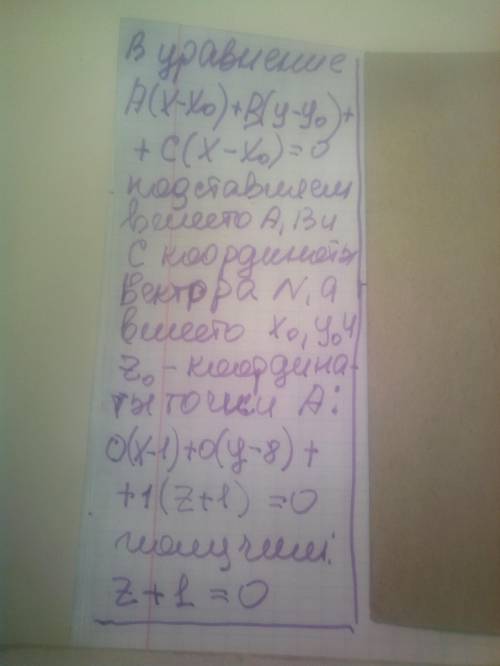 В уравнение
A(x-x₀)+B(y-y₀)+
+C(x-x₀)=0
подставляем
вместо A, B и
C координаты
вектора N, а
вместо x₀, y₀ и
z₀ - координа-
ты точки A:
0(x-1)+0(y-8)+
+1(z+1)=0
получим:
z+1=0